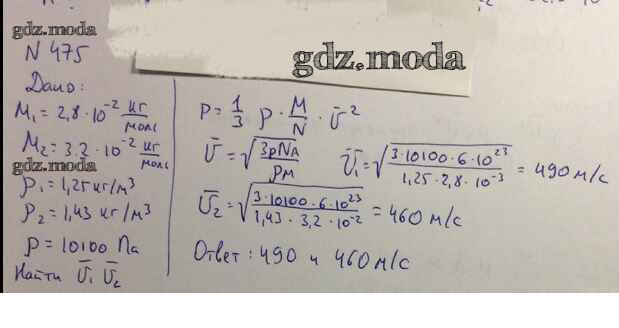 gdz.moda
N 475
gdz.moda
Дано:
M₁ = 2,8 · 10⁻² кг/моль
M₂ = 3,2 · 10⁻² кг/моль
gdz.moda
ρ₁ = 1,25 кг/м³
ρ₂ = 1,43 кг/м³
p = 10100 Па
Найти Ū₁ Ū₂
P = 1/3 ρ · M/N · Ū²
Ū = √(3pNA/ρM) Ū₁ = √(3·10100·6·10²³/1,25·2,8·10⁻³) = 490 м/с
Ū₂ = √(3·10100·6·10²³/1,43·3,2·10⁻²) = 460 м/с
Ответ: 490 и 460 м/с